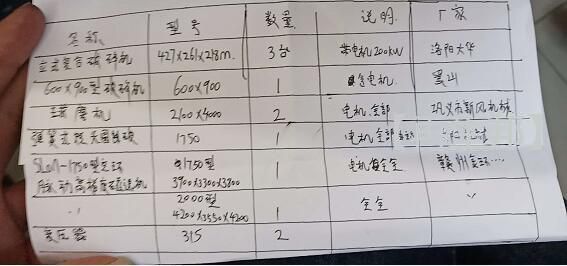 名称 型号 数量 说明 厂家
立式复合破碎机 427×261×218m. 3台 带电机200kw 洛阳大华
600×900型破碎机 600×900 1 电机. 黑山
球磨机 2100×4000 2 电机全部 巩义市新风机械
弹簧式 1750 1 电机全部
SLon-1750型立环 1750型 1 电机 全 赣州立环…
脉动高梯度磁选机 3900×3300×3800
〃 2000型 1 全全 〃
4200×3550×4200
变压器 315 2